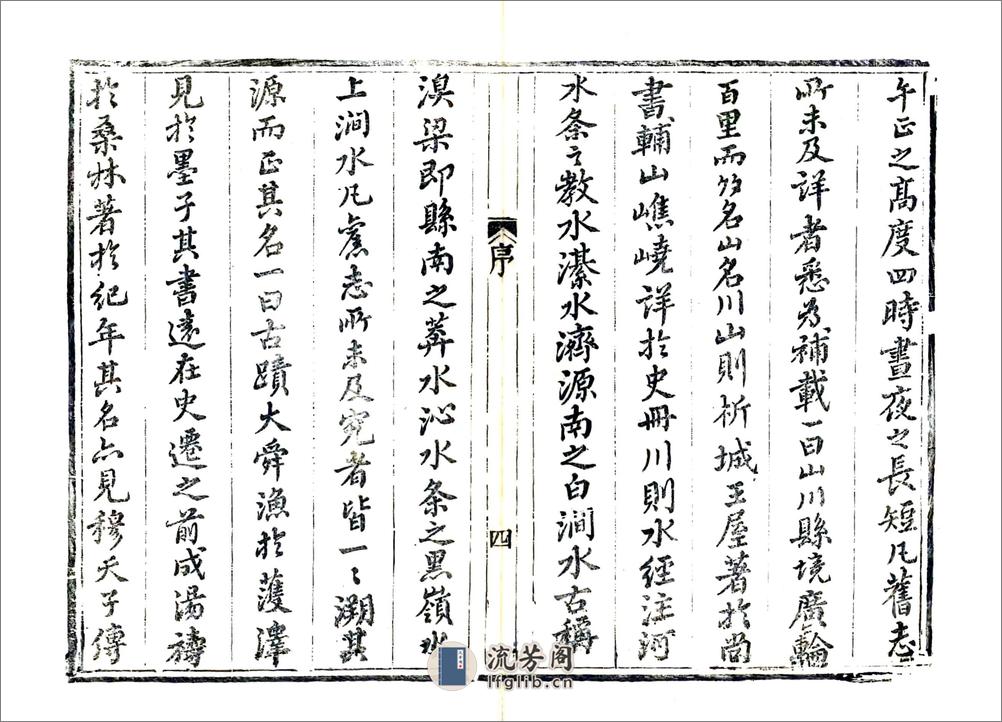 午正之髙度四時晝夜之長短凡舊志
所未及詳者悉為補載一曰山川縣境廣輪
百里而多名山名川山則析城王屋著於尚
書輔山嶕嶢詳於史冊川則水經注河
水条之教水濝水濟源南之白澗水古稱
序
四
湨梁即縣南之莽水沁水条之黒嶺水
上澗水凡舊志所未及究者皆一〻溯其
源而正其名一曰古蹟大舜漁於濩澤
見於墨子其書逺在史遷之前成湯禱
於桑林著於紀年其名亦見穆天子傳
流芳阁
lfglib.cn